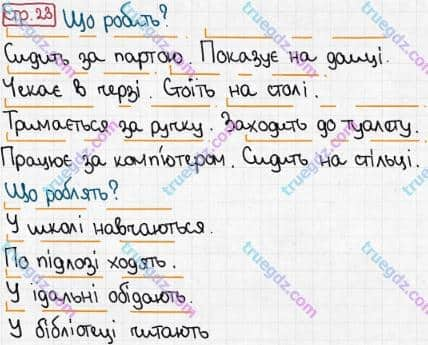 стр. 23 Що робить?
Сидить за партою. Показує на дошці.
Чекає в черзі. Стоїть на столі.
Тримається за ручку. Заходить до туалету.
Працює за комп'ютером. Сидить на стільці.
Що роблять?
У школі навчаються.
По підлозі ходять.
У їдальні обідають.
У бібліотеці читають
truegdz.com